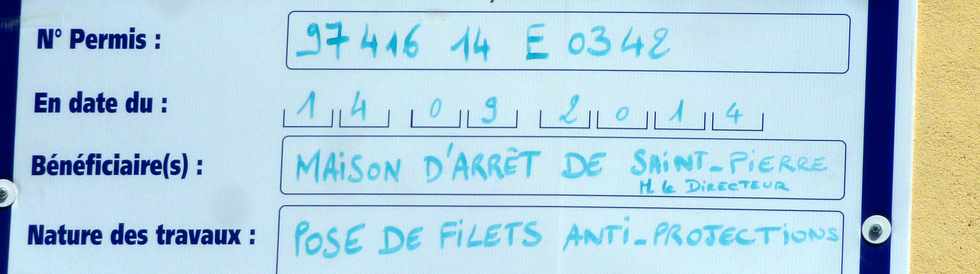 N° Permis : 97416 14 E 0342
En date du : 14 09 2014
Bénéficiaire(s) : MAISON D'ARRÊT DE SAINT-PIERRE
M. le DIRECTEUR
Nature des travaux : POSE DE FILETS ANTI-PROJECTIONS